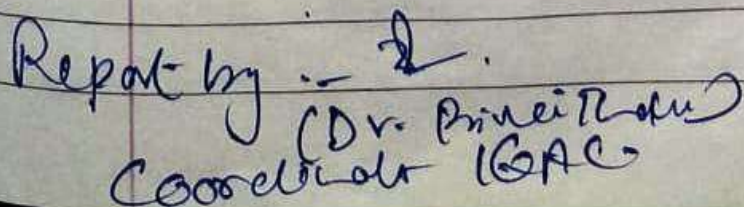 Report by :-
(Dr.
Coordinator IQAC